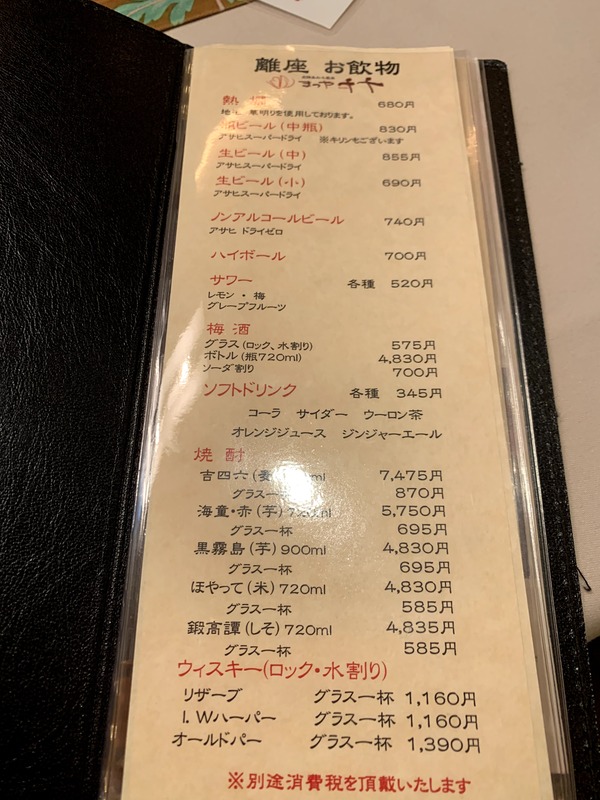 離座 お飲物
熱 680円
を使用しております。
ビール(中瓶) 830円
アサヒスーパードライ ※キリンもございます
生ビール(中) 855円
アサヒスーパードライ
生ビール(小) 690円
アサヒスーパードライ
ノンアルコールビール 740円
アサヒ ドライゼロ
ハイボール 700円
サワー 各種 520円
レモン・梅
グレープフルーツ
梅酒
グラス(ロック、水割り) 575円
ボトル(瓶720ml) 4,830円
ソーダ割り 700円
ソフトドリンク 各種 345円
コーラ サイダー ウーロン茶
オレンジジュース ジンジャーエール
焼酎
吉四六(麦) ml 7,475円
グラス一杯 870円
海童・赤(芋)720ml 5,750円
グラス一杯 695円
黒霧島(芋)900ml 4,830円
グラス一杯 695円
ほやって(米)720ml 4,830円
グラス一杯 585円
鍛高譚(しそ)720ml 4,835円
グラス一杯 585円
ウィスキー(ロック・水割り)
リザーブ グラス一杯 1,160円
I.Wハーパー グラス一杯 1,160円
オールドパー グラス一杯 1,390円
※別途消費税を頂戴いたします